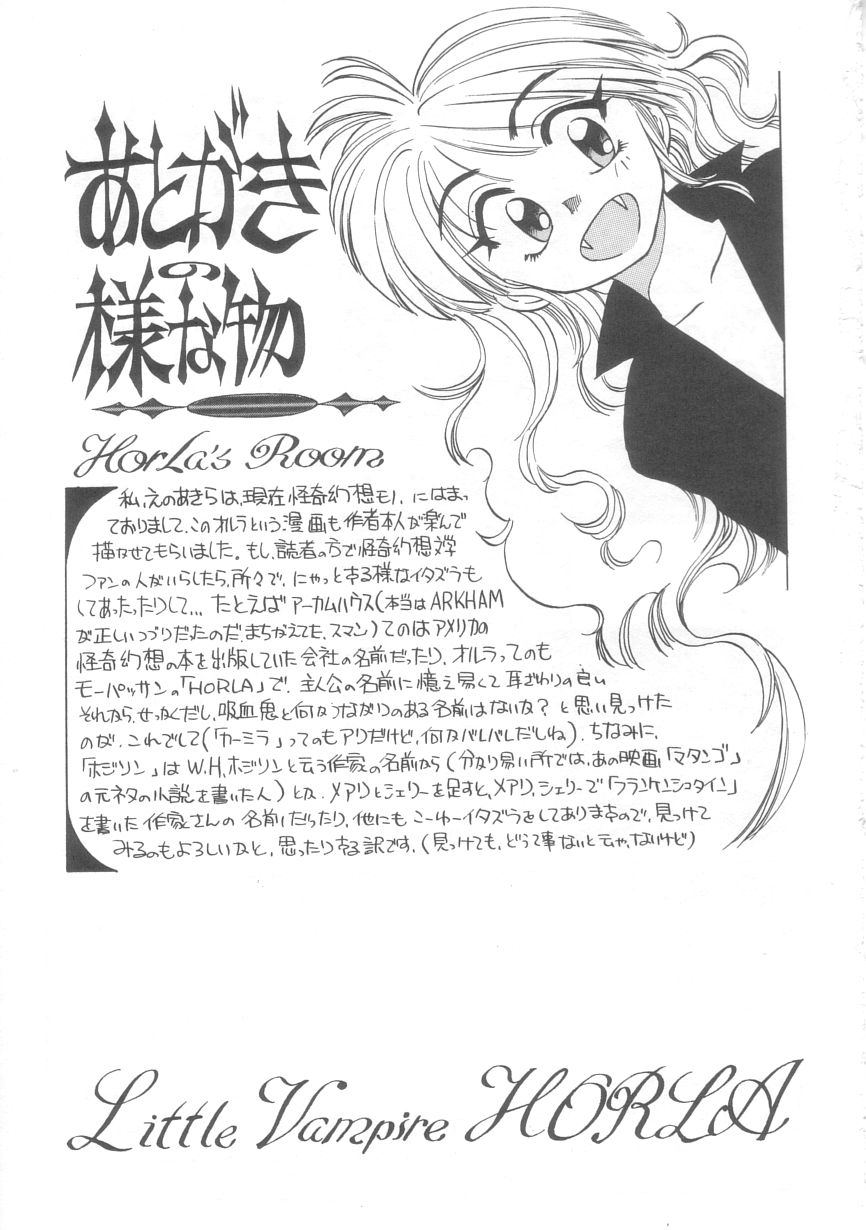 あとがき
の
様な物
HorLa's Room
私、えのあきらは、現在怪奇幻想モノ、にはまっ
ておりまして、このオルラという漫画も作者本人が楽んで
描かせてもらいました。もし、読者の方で怪奇幻想文学
ファンの人がいらしたら、所々で、にやっとする様なイタズラも
してあったりして… たとえばアーカムハウス(本当はARKHAM
が正しいつづりだったのだ、まちがえてた、スマン)てのはアメリカの
怪奇幻想の本を出版していた会社の名前だったり、オルラってのも
モーパッサンの「HORLA」で、主人公の名前に憶え易くて耳ざわりの良い
それなら、せっかくだし、吸血鬼と何かつながりのある名前はないか?と思い見つけた
のが、これでして(「カーミラ」ってのもアリだけど、何かバレバレだしね)、ちなみに、
「ホジソン」はW.H.ホジソンと云う作家の名前から(分かり易い所では、あの映画「マタンゴ」
の元ネタの小説を書いた人)とか、メアリとシェリーを足すと、メアリ、シェリーで「フランケンシュタイン」
を書いた作家さんの名前だったり、他にもこーゆーイタズラをしてありますので、見つけて
みるのもよろしいかと、思ったりする訳です。(見つけても、どうて事ないと云や、ないけど)
Little Vampire HORLA